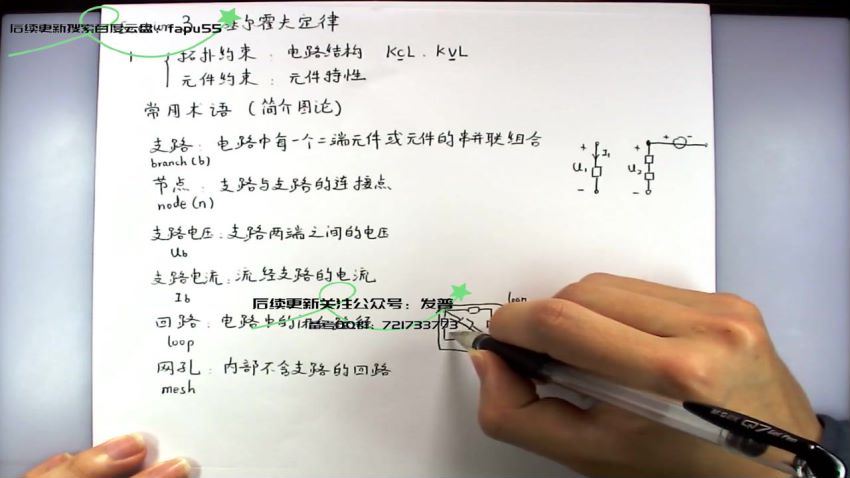 后续更新搜索百度云盘：fapu55
3 基尔霍夫定律
1 拓扑约束：电路结构 KCL、KVL
元件约束：元件特性
常用术语（简介图论）
支路：电路中每一个二端元件或元件的串并联组合
branch(b)
节点：支路与支路的连接点
node(n)
支路电压：支路两端之间的电压
Ub
支路电流：流经支路的电流
Ib
回路：电路中的
loop
网孔：内部不含支路的回路
mesh
+ I1
U1
-
+ -
+
U2
-
loop
后续更新关注公众号：发普
备考QQ群：721733773